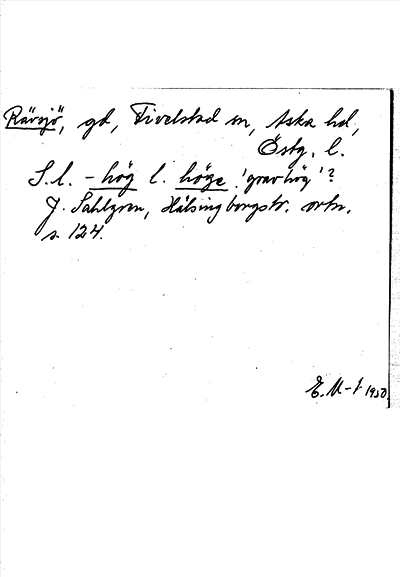 Rävsjö, gd, Fivelstad sn, Aska hd,
Östg. l.
S.l. - hög l. höge 'gravhög'?
J. Sahlgren, Hälsingborgstr. ortn.
s. 124.
E. M-f 1950.